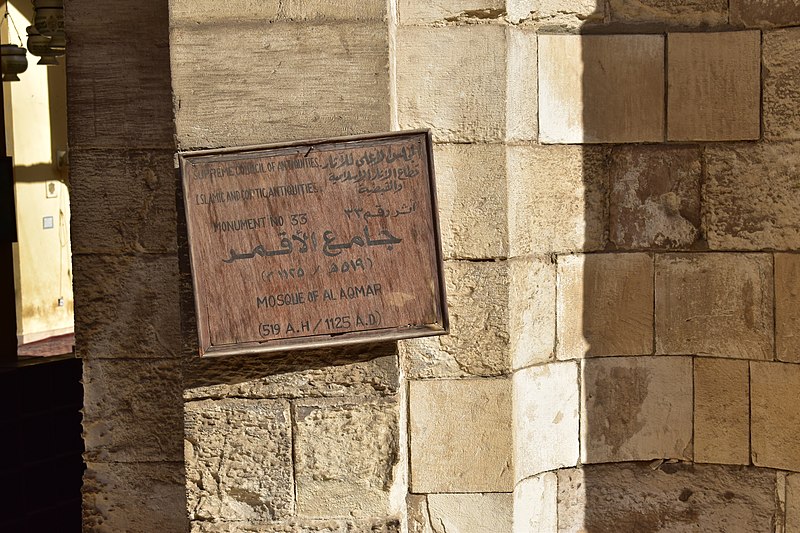 SUPREME COUNCIL OF ANTIQUITIES المجلس الأعلى للآثار
ISLAMIC AND COPTIC ANTIQUITIES قطاع الآثار الإسلامية
والقبطية
MONUMENT NO 33 أثر رقم ٣٣
جامع الأقمر
(٥١٩ هـ / ١١٢٥ م)
MOSQUE OF AL AQMAR
(519 A.H / 1125 A.D)